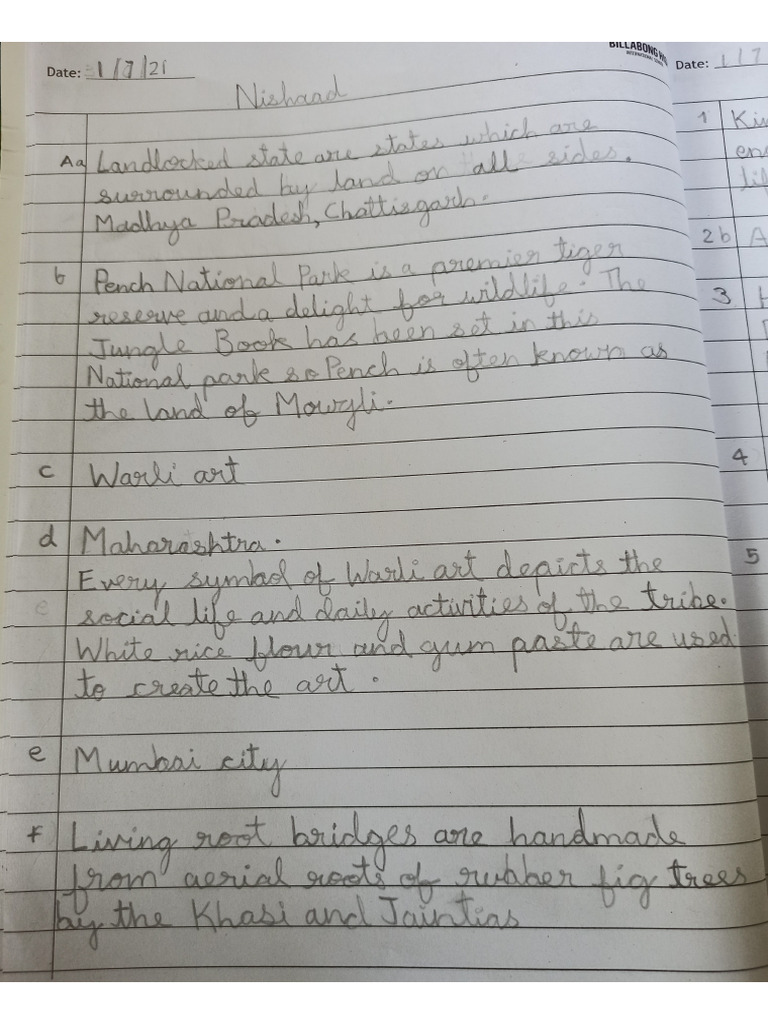 BILLABONG HI
INTERNATIONAL SCHOOL
Date: 1/7/21
Date: 1/7
Nishaad
Aa Landlocked state are states which are
surrounded by land on all sides.
Madhya Pradesh, Chattisgarh.
b Pench National Park is a premier tiger
reserve and a delight for wildlife. The
Jungle Book has been set in this
National park so Pench is often known as
the land of Mowgli.
c Warli art
d Maharashtra.
Every symbol of Warli art depicts the
e social life and daily activities of the tribe.
White rice flour and gum paste are used
to create the art.
e Mumbai city
f Living root bridges are handmade
from aerial roots of rubber fig trees
by the Khasi and Jaintias
1 Ki
en
li
2b A
3 H
4
5